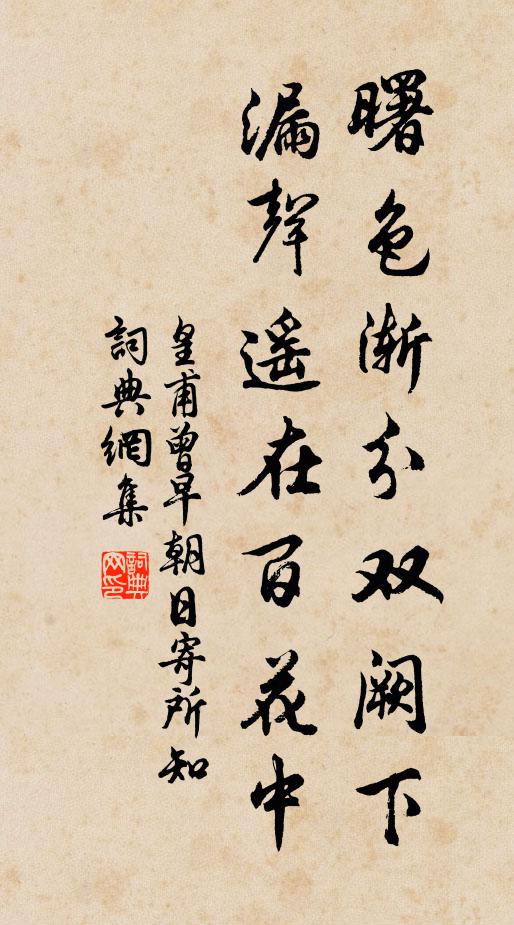 曙色渐分双阙下
漏聲遥在百花中
皇甫曾早朝日寄所知
詞典網集
詞典网印